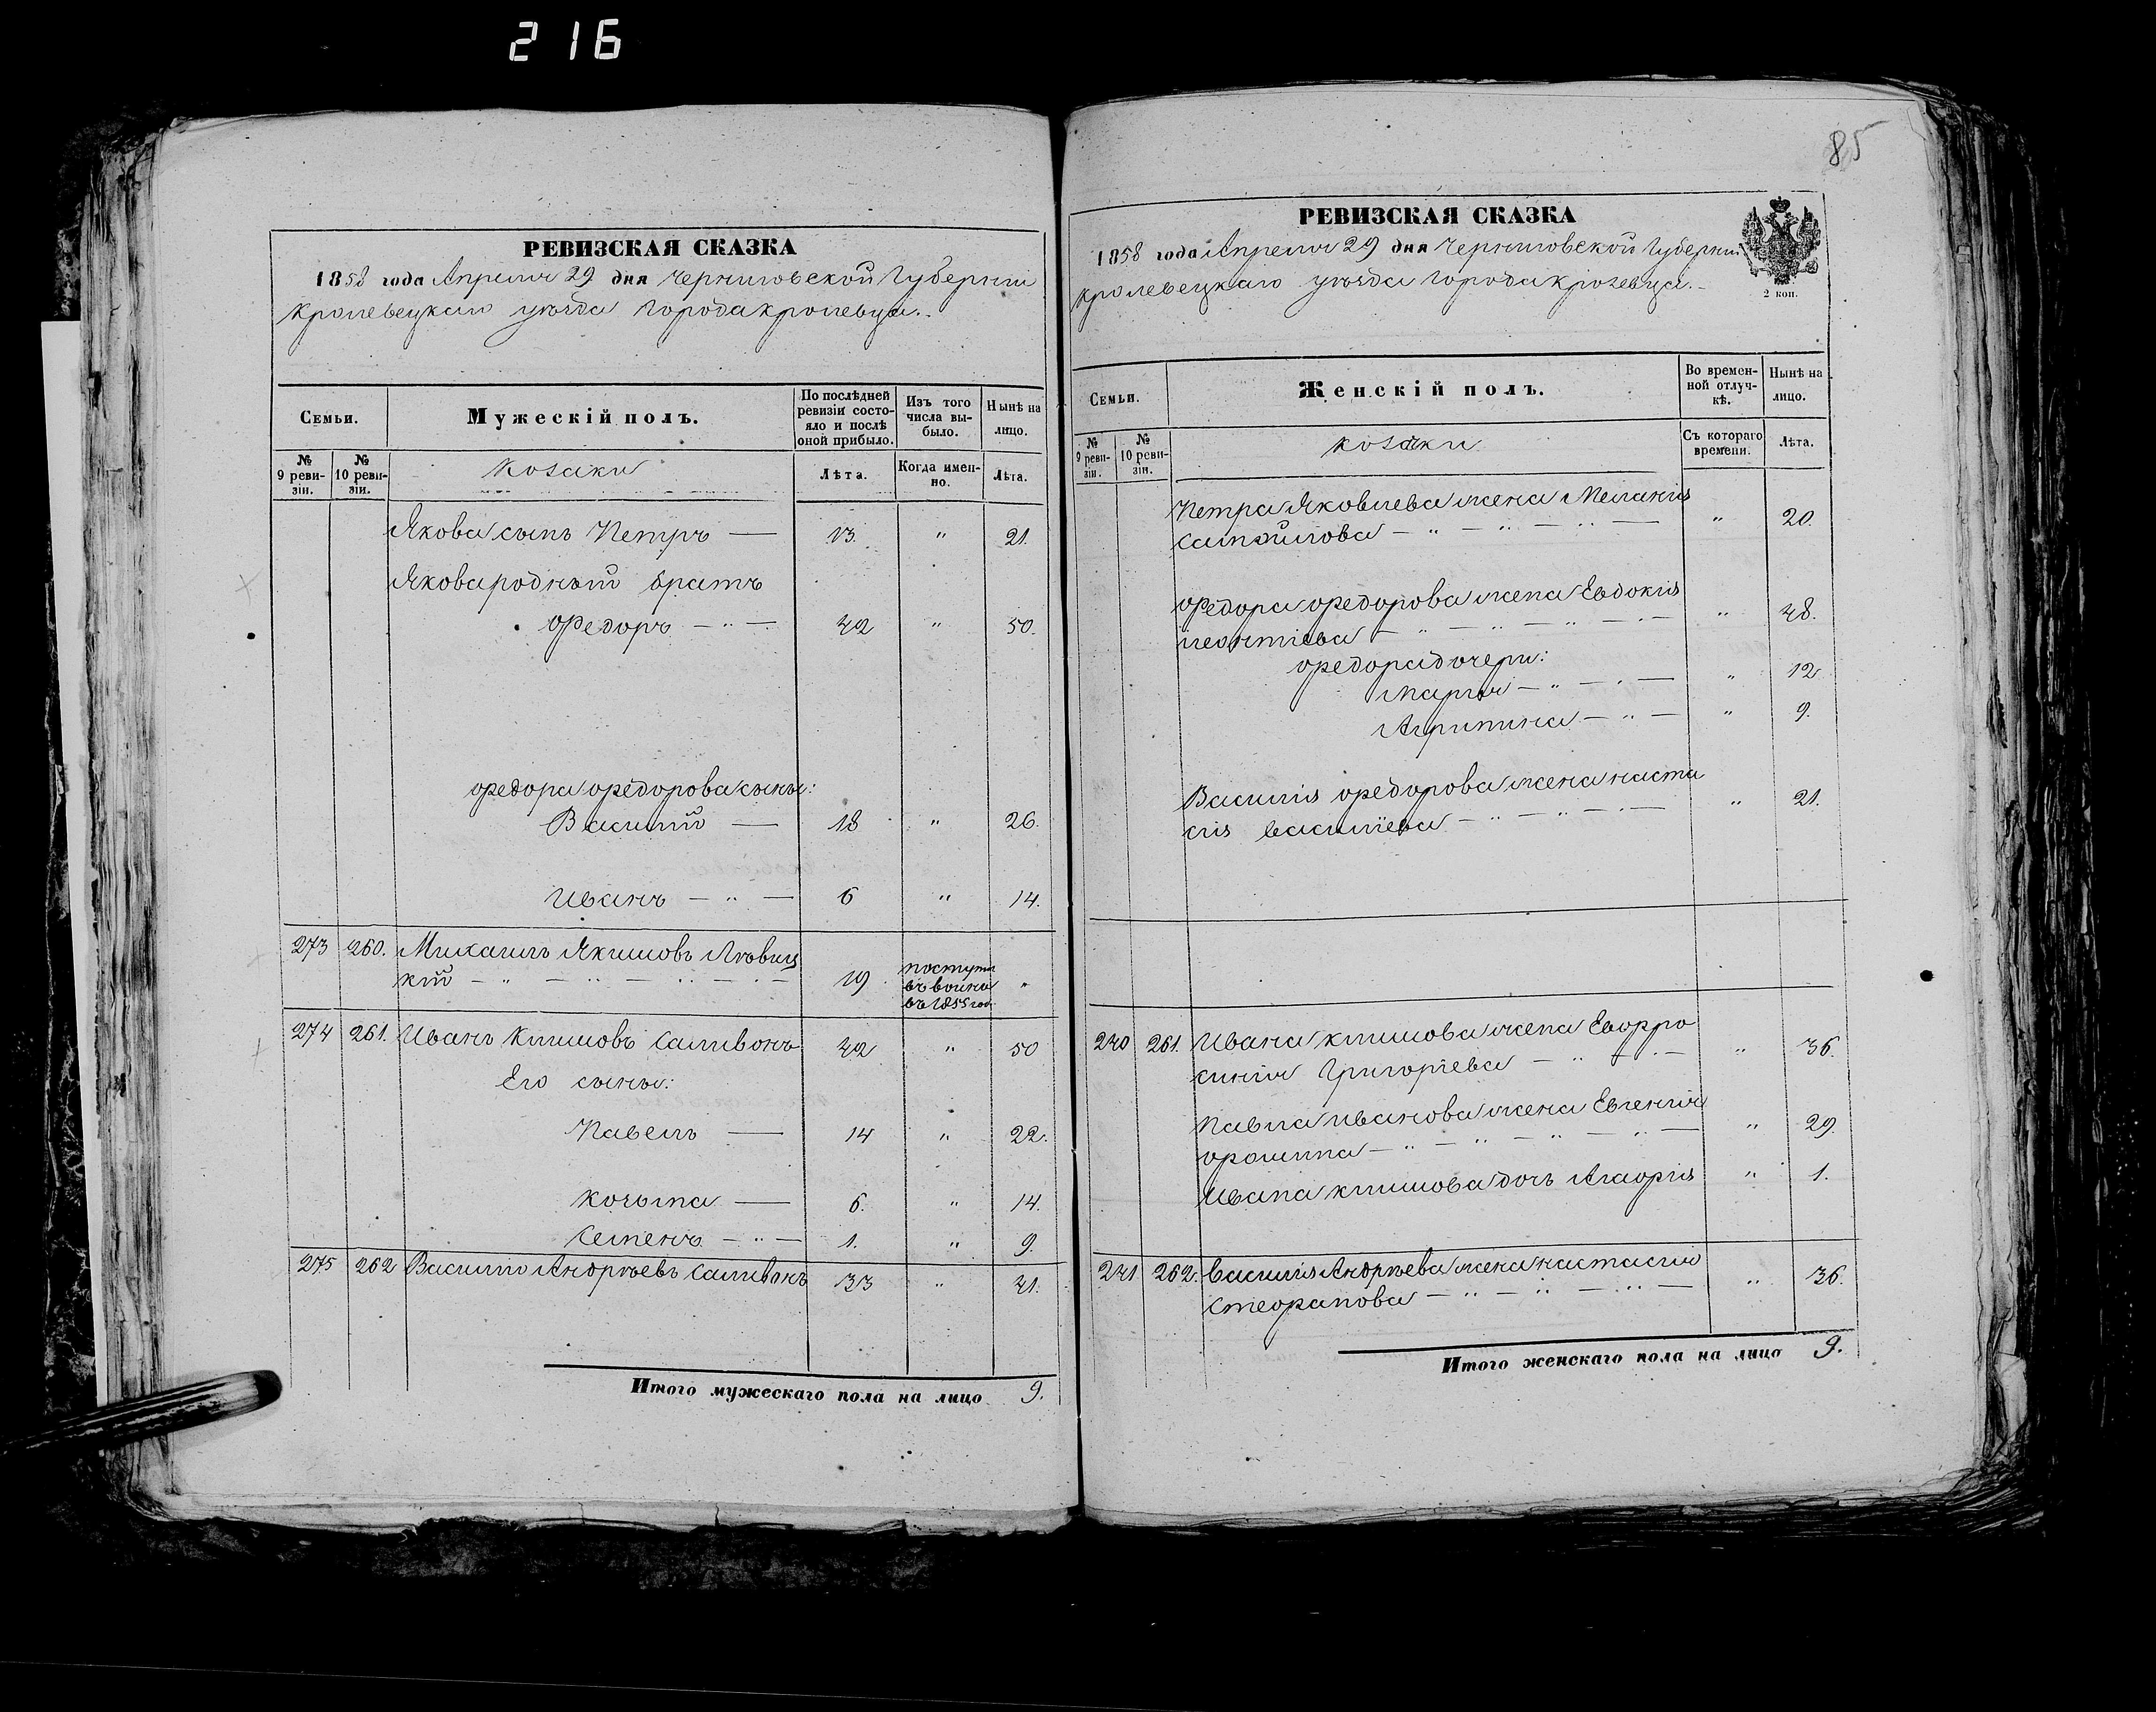 216
РЕВИЗСКАЯ СКАЗКА
1858 года Апреля 29 дня Черниговской Губерніи
Кролевецкаго уѣзда города Кролевца.
Семьи.
Мужескій полъ.
По послѣдней ревизіи состояло и послѣ оной прибыло.
Изъ того числа выбыло.
Нынѣ на лицо.
№ 9 ревизіи.
№ 10 ревизіи.
Козаки
Лѣта.
Когда именно.
Лѣта.
Якова сынъ Петръ — 13. " 21.
Якова родный братъ
Федоръ — " — 42 " 50.
Федора Федорова сыны:
Василій — 18 " 26.
Иванъ — " — 6 " 14.
273 260. Михаилъ Якимовъ
кій — " — " — " — 19 поступи "
въ
въ 1855 год.
274 261. Иванъ Климовъ Саливонъ 42 " 50
Его сыны:
Павелъ — 14 " 22.
— 6. " 14.
Семенъ — " — 1. " 9.
275 262 Василий Андреевъ Саливонъ 33 " 41.
Итого мужескаго пола на лицо 9.
85
РЕВИЗСКАЯ СКАЗКА
1858 года Апреля 29 дня Черниговской Губерніи
Кролевецкаго уѣзда города Кролевца.
2 коп.
Семьи.
Женскій полъ.
Во временной отлучкѣ.
Нынѣ на лицо.
№ 9 ревизіи.
№ 10 ревизіи.
Козачки
Съ котораго времени.
Лѣта.
Петра Яковлева жена Меланія
Самойлова — " — " — " 20.
Федора Федорова жена Евдокия
Леонтіева — " — " — " — " 48.
Федора дочери:
Марья — " — " 12
Агрипина — " — " 9.
Василия Федорова жена Наста
сия Василіева — " — " — " 21.
240 261. Ивана Климова жена Евфро
синия Григоріева — " — " 36.
Павла Иванова жена Евгения
— " — " — " — " 29.
Ивана Климова дочь Агафия " 1.
241 262. Василия Андреева жена Настасия
Стефанова — " — " — " — " 36.
Итого женскаго пола на лицо 9.